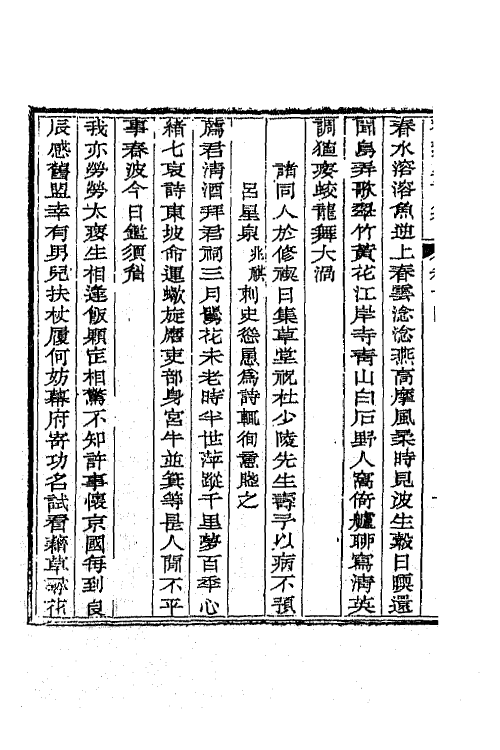 春水溶溶魚逆上春雲淰淰燕高摩風柔時見波生縠日暝還
聞鳥弄歌翠竹黃花江岸寺靑山白石野人窩倚艫聊寫淸英
調猶瘦蛟龍舞大渦
諸同人於修禊日集草堂祝杜少陵先生壽予以病不預
呂星泉兆麒刺史慫慂爲詩輒徇意賸之
薦君淸酒拜君祠三月鶯花未老時半世萍蹤千里夢百年心
緖七哀詩東坡命運蠍旋磨吏部身宮牛並箕等是人間不平
事春波今日鑑須眉
我亦勞勞太瘦生相逢飯顆定相驚不知許事懷京國每到良
辰感舊盟幸有男兒扶杖履何妨幕府寄功名試看藉草尋花